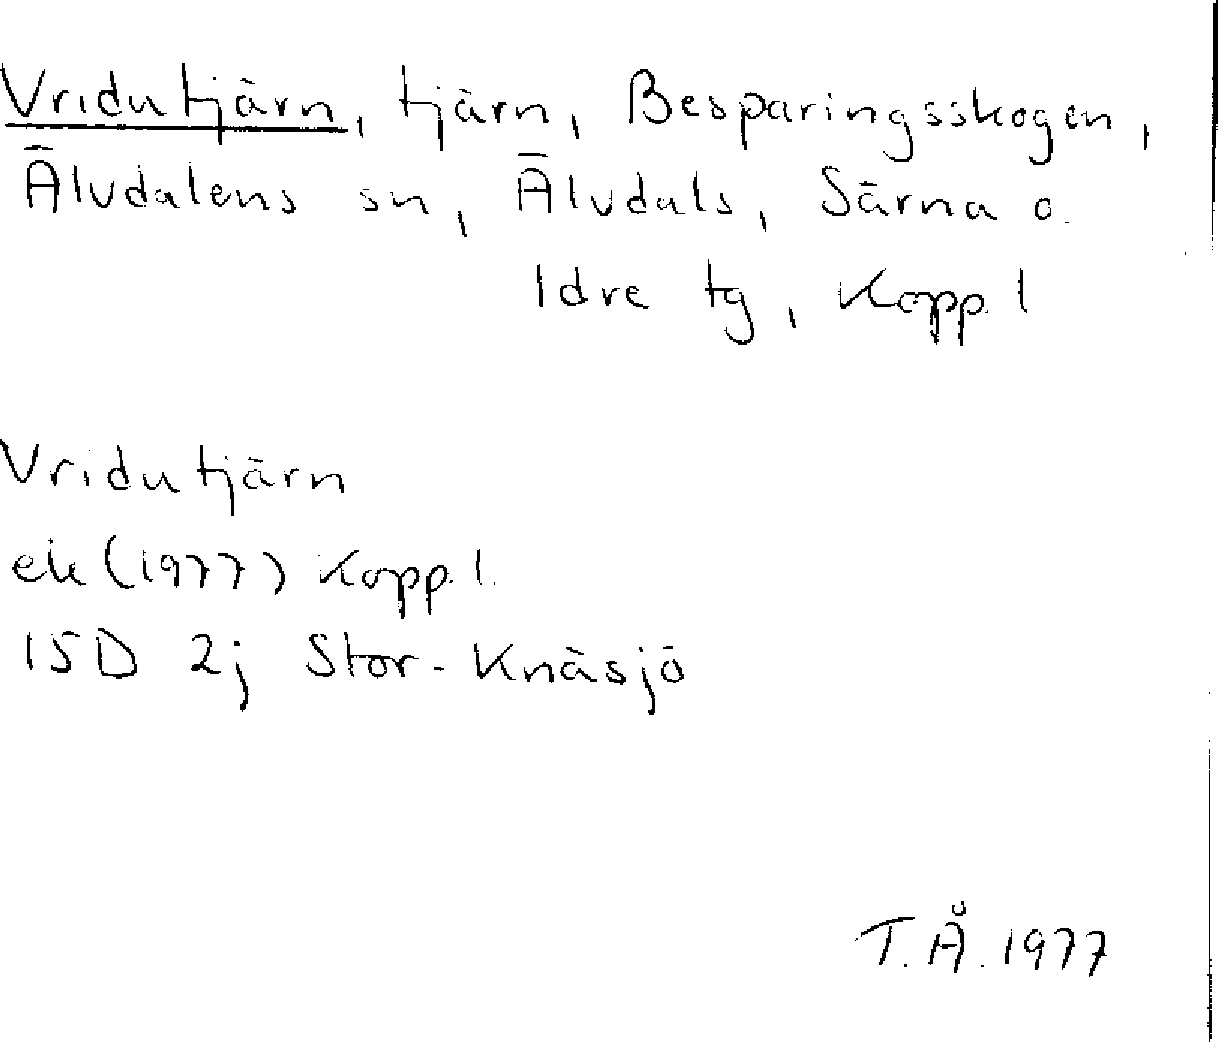 Vridutjärn, tjärn, Besparingsskogen,
Älvdalens sn, Älvdals, Särna o.
Idre tg, Kopp. l
Vridutjärn
ek (1977) Kopp. l.
15D 2j Stor-Knäsjö
T.Å. 1977